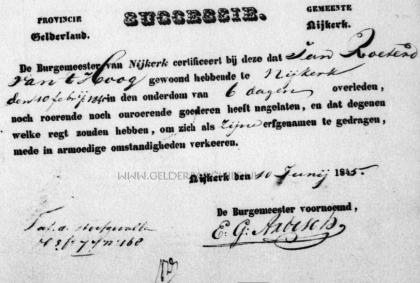 PROVINCIE
Gelderland.
SUCCESSIE.
GEMEENTE
Nijkerk.
De Burgemeester van Nijkerk certificeert bij deze dat Jan
van 't Hoog gewoond hebbende te Nijkerk
den 10 febrij in den ouderdom van 6 dagen overleden,
noch roerende noch onroerende goederen heeft nagelaten, en dat degenen
welke regt zouden hebben, om zich als zijne erfgenamen te gedragen,
mede in armoedige omstandigheden verkeeren.
WWW.GELDER
Nijkerk den 10 Junij 1845.
De Burgemeester voornoemd,
E: G: